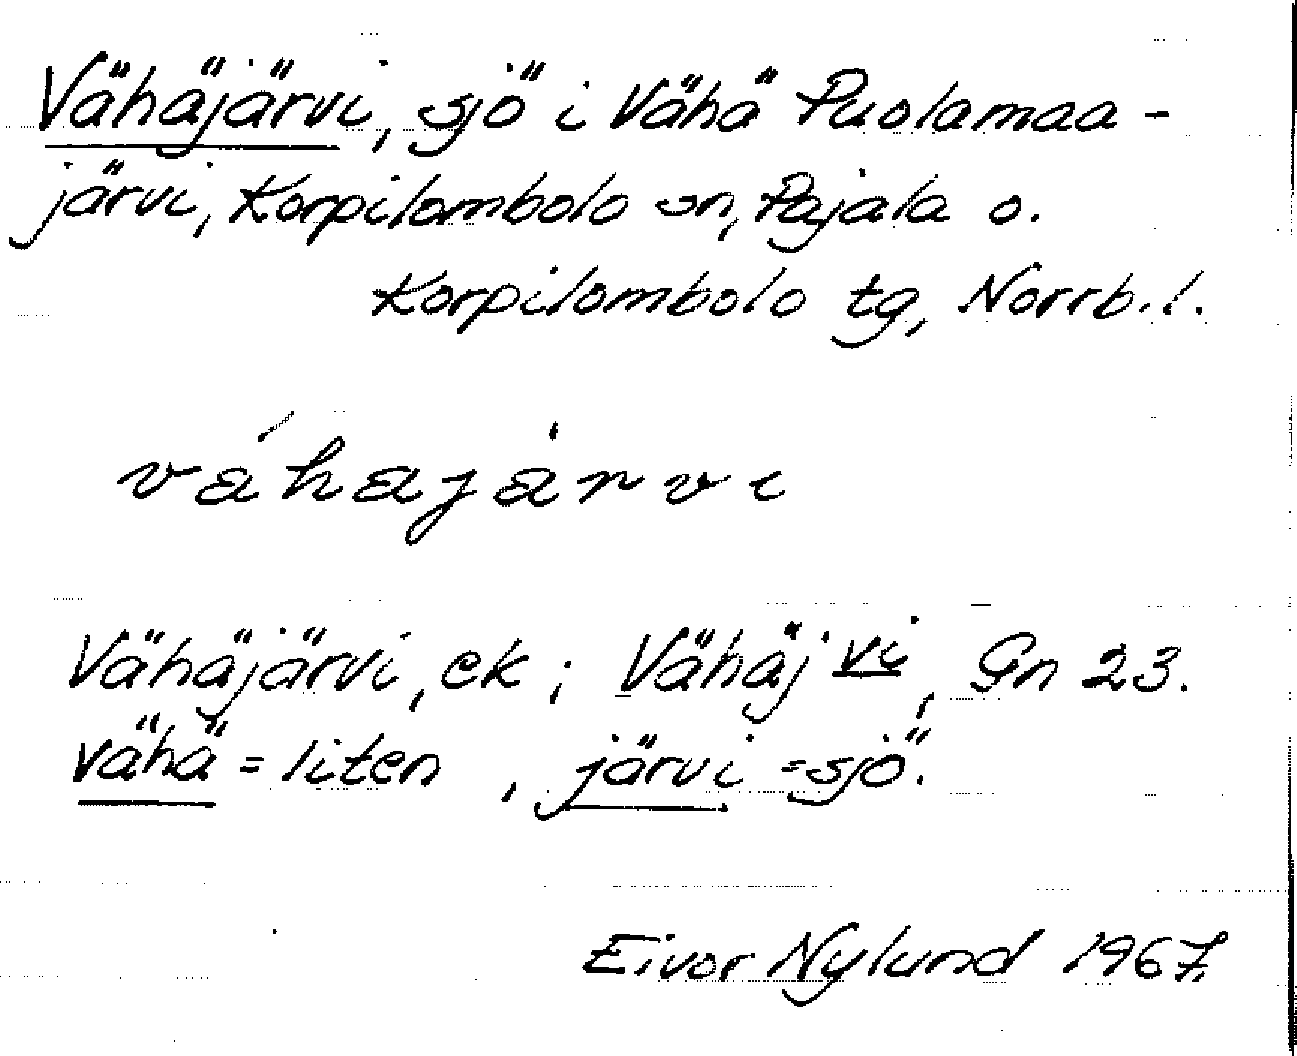 Vähäjärvi, sjö i Vähä Puolamaa-
järvi, Korpilombolo sn, Pajala o.
Korpilombolo tg, Norrb. l.
váhajàrvi
Vähäjärvi, ek; Vähäj vi, Gn 23.
vähä = liten, järvi = sjö.
Eivor Nylund 1967